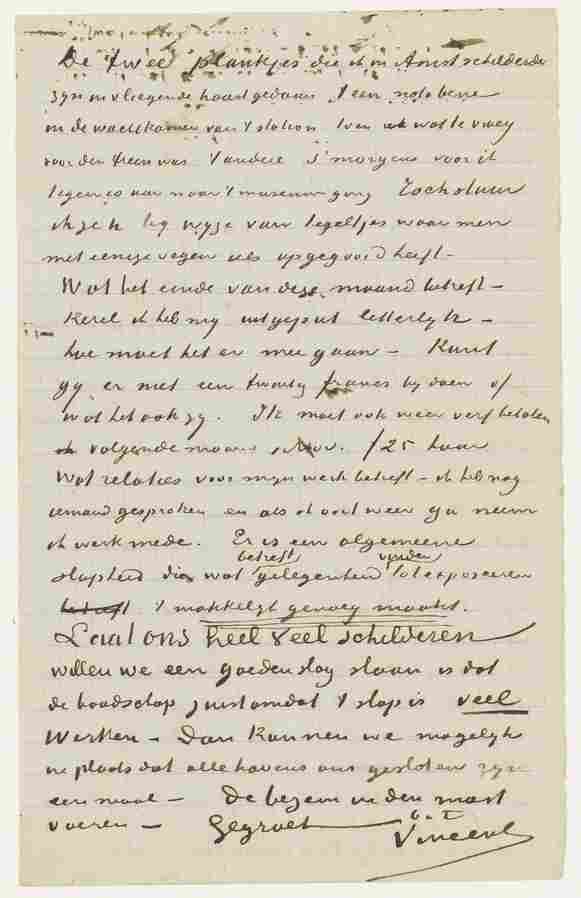 De twee plankjes die ik in Amst schilderde
zyn in vliegende haast gedaan 't een nota bene
in de wachtkamer van 't station toen ik wat te vroeg
voor den trein was 't andere s'morgens voor ik
tegen 10 uur naar 't museum ging Toch stuur
ik ze U by wyze van tegeltjes waar men
met eenige vegen iets op gegooid heeft –
Wat het einde van deze maand betreft –
Kerel ik heb my uitgeput letterlyk –
hoe moet het er mee gaan – Kunt
gy er met een twenty francs by doen of
wat het ook zy. Ik moet ook weer verf betalen
volgende maand 1 Nov. f 25 huur
Wat relaties voor myn werk betreft – ik heb nog
iemand gesproken en als ik ooit weer ga neem
ik werk mede. Er is een algemeene
betreft vinden
slapheid die wat gelegenheid tot exposeeren
betreft 't makkelyk genoeg maakt.
Laat ons heel veel schilderen
willen we een goeden slag slaan is dat
de boodschap juist omdat 't slap is veel
Werken – Dan kunnen we mogelyk
in plaats dat alle havens ons gesloten zyn
een maal – De bezem in den mast
voeren – Gegroet
b.à.t.
Vincent